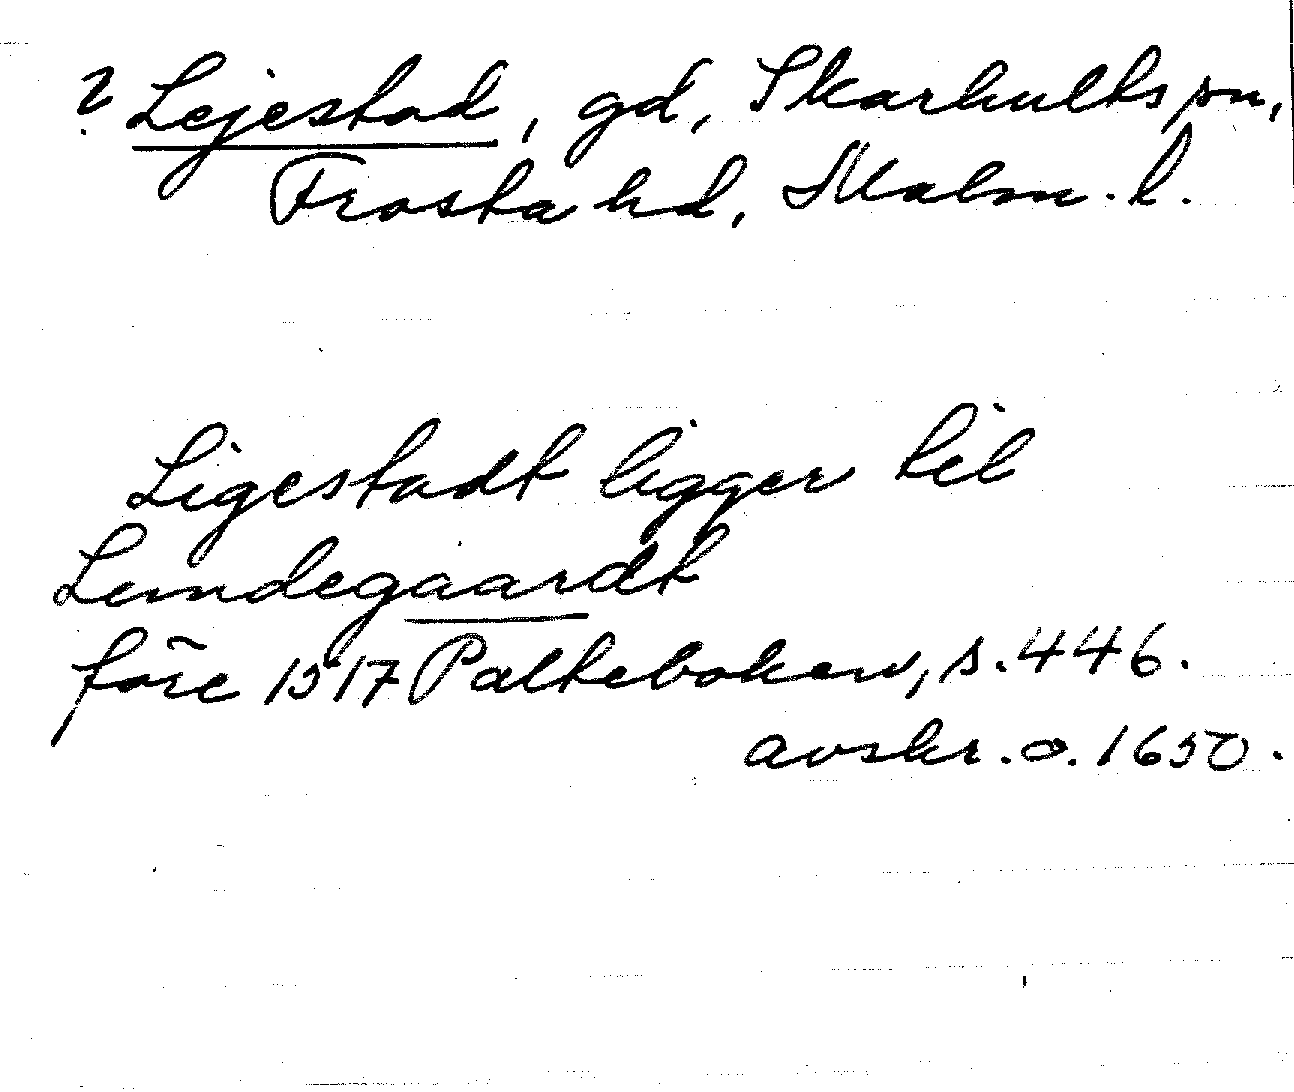 ? Lejestad, gd, Skarhults sn,
Frosta hd, Malm. l.
Ligestadt ligger til
Lundegaardt
före 1517 Palteboken, s. 446.
avskr. o. 1650.